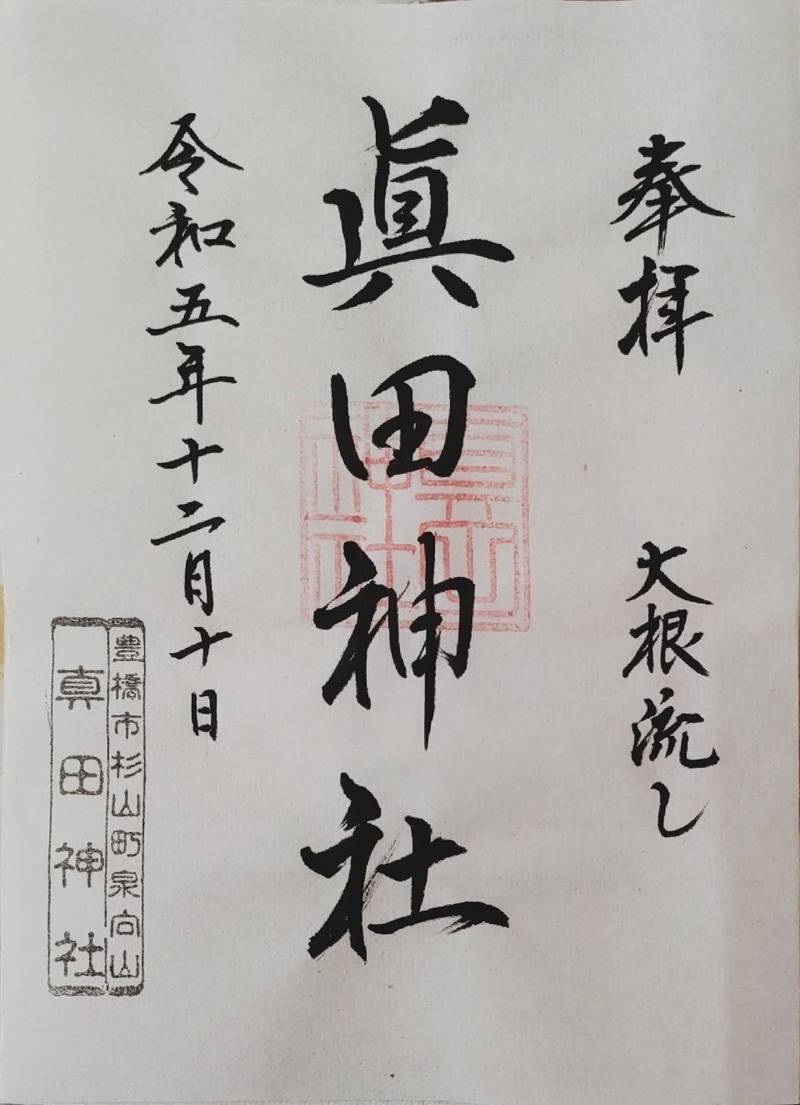 奉拝
大根流し
眞田神社
令和五年十二月十日
豊橋市杉山町泉向山
真田神社